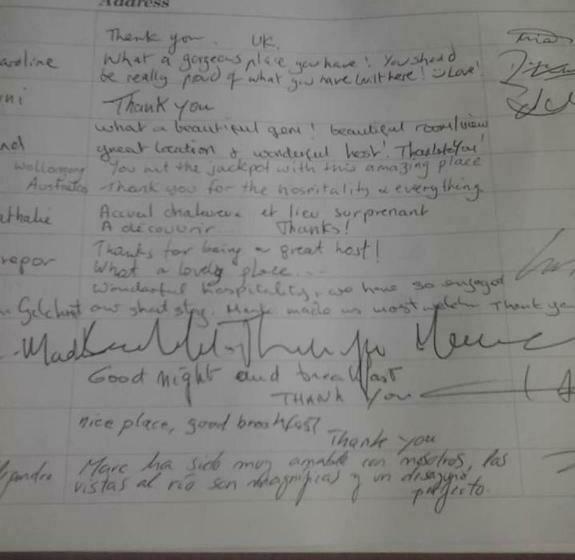 Address
Thank you. UK.
aroline What a gorgeous place you have! You should
be really proud of what you have built here! Love!
Thank you
What a beautiful gem! beautiful room/view
great location & wonderful host! Thank you!
Wollongong You hit the jackpot with this amazing place
Australia Thank you for the hospitality & everything
athalie Accueil chaleureux et lieu surprenant
A découvrir Thanks!
Thanks for being a great host!
What a lovely place...
Wonderful hospitality, we have so enjoyed
our short stay. Made us most welcome Thank you
Good night and breakfast
THANK you
nice place, good breakfast
Thank you
ejandro Marc ha sido muy amable con nosotros, las
vistas al río son magníficas y un desayuno
perfecto.